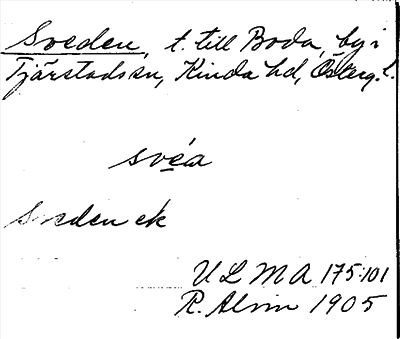 Sveden, t. till Boda, by i
Tjärstads sn, Kinda hd, Österg. l.
svéa
Sveden ek
ULMA 175:101
R. Alm 1905